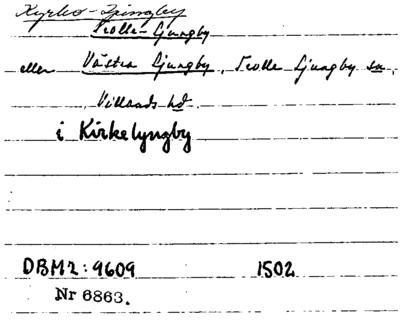 Kyrko-Ljungby
Trolle-Ljungby
eller Västra Ljungby, Trolle Ljungby sn,
Villands hd.
i Kirkelyngby
DBM2:9609 1502
Nr 6863.